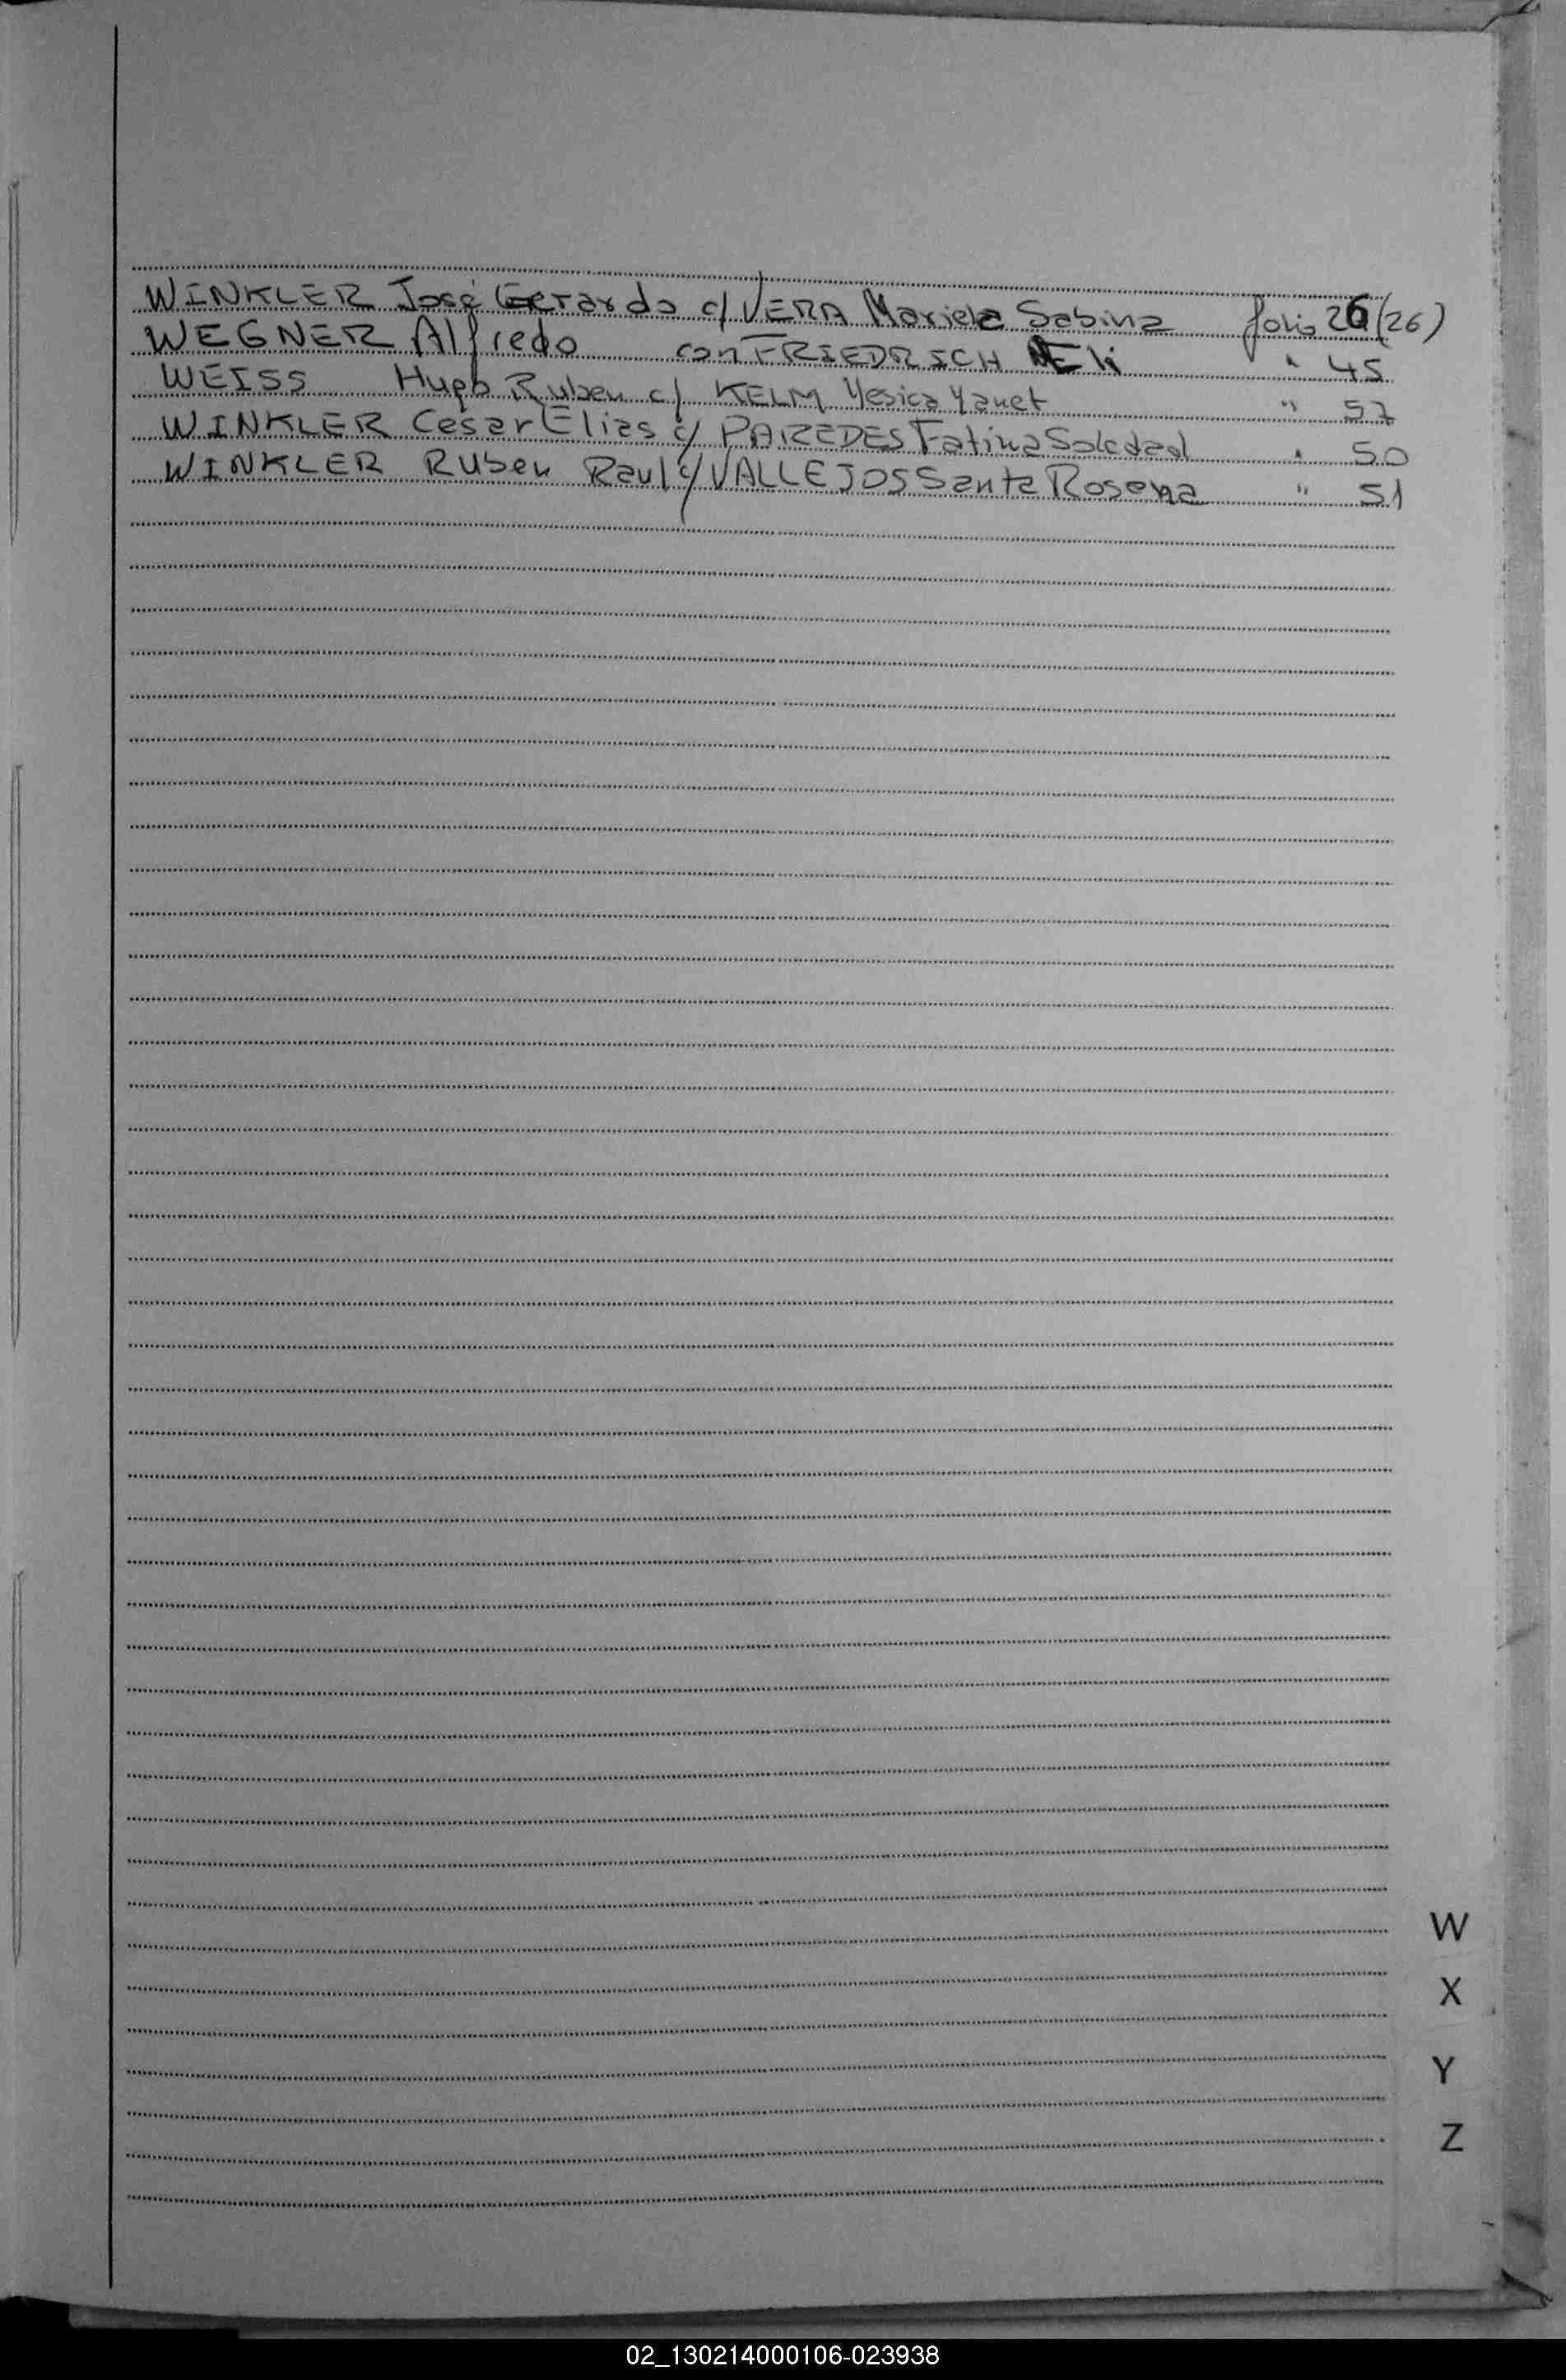 WINKLER José Gerardo c/ VERA Mariela Sabina folio 26 (26)
WEGNER Alfredo con FRIEDRISCH Eli " 45
WEISS Hugo Ruben c/ KELM Yesica Yanet " 57
WINKLER Cesar Elias c/ PAREDES Fatima Soledad " 50
WINKLER Ruben Raul c/ VALLEJOS Santa Rosena " 51
W
X
Y
Z
02_130214000106-023938